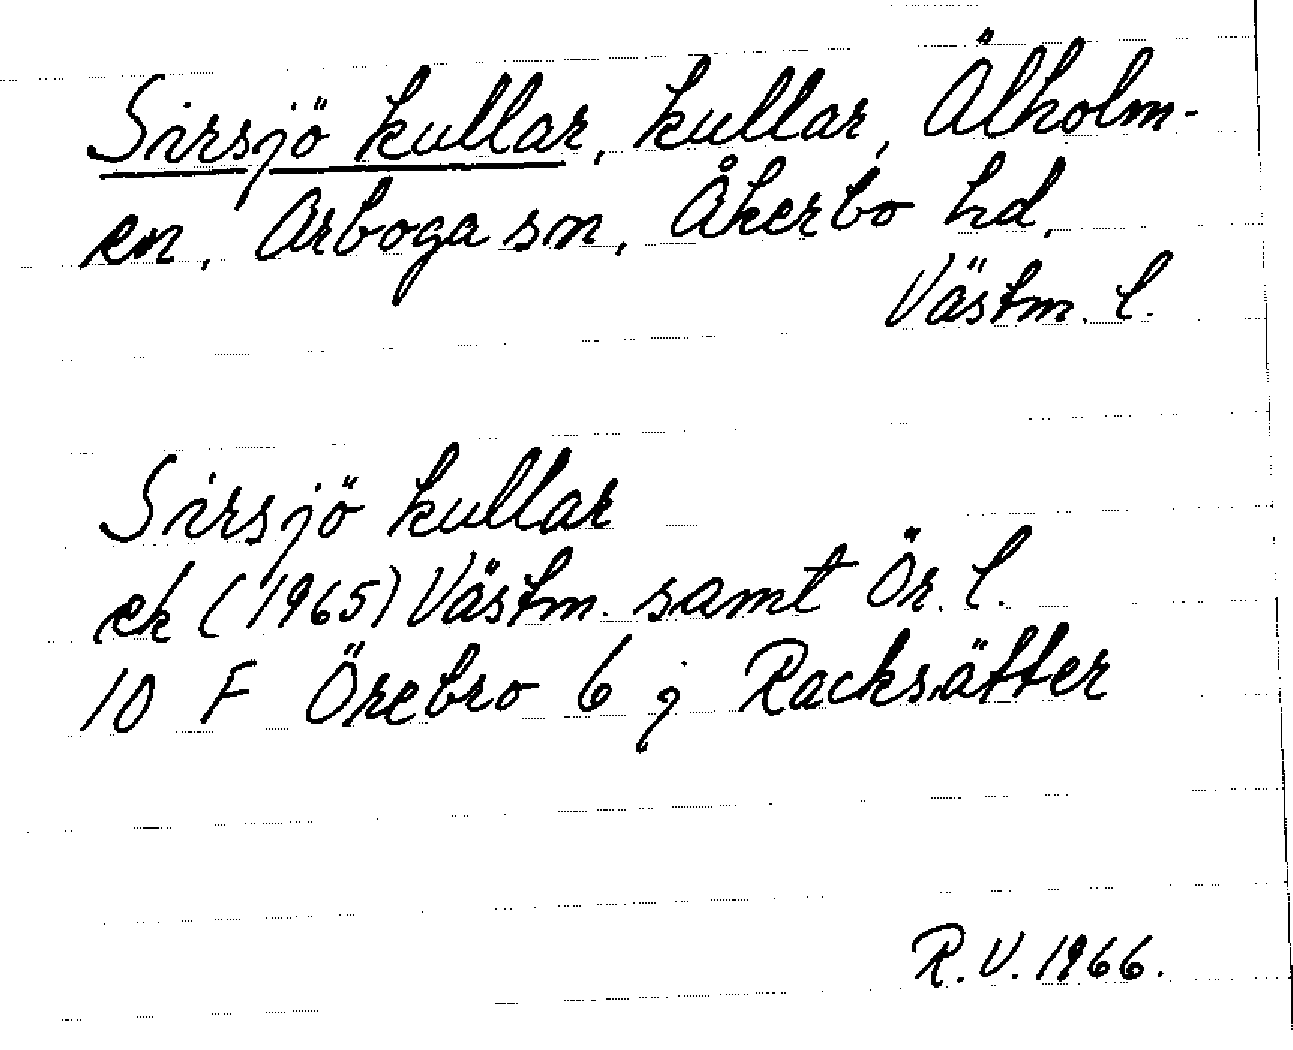 Sirsjö kullar, kullar, Ålholm-
en, Arboga sn, Åkerbo hd,
Västm. l.
Sirsjö kullar
ek (1965) Västm. samt Ör. l.
10 F Örebro 6 j Racksätter
R.V. 1966.